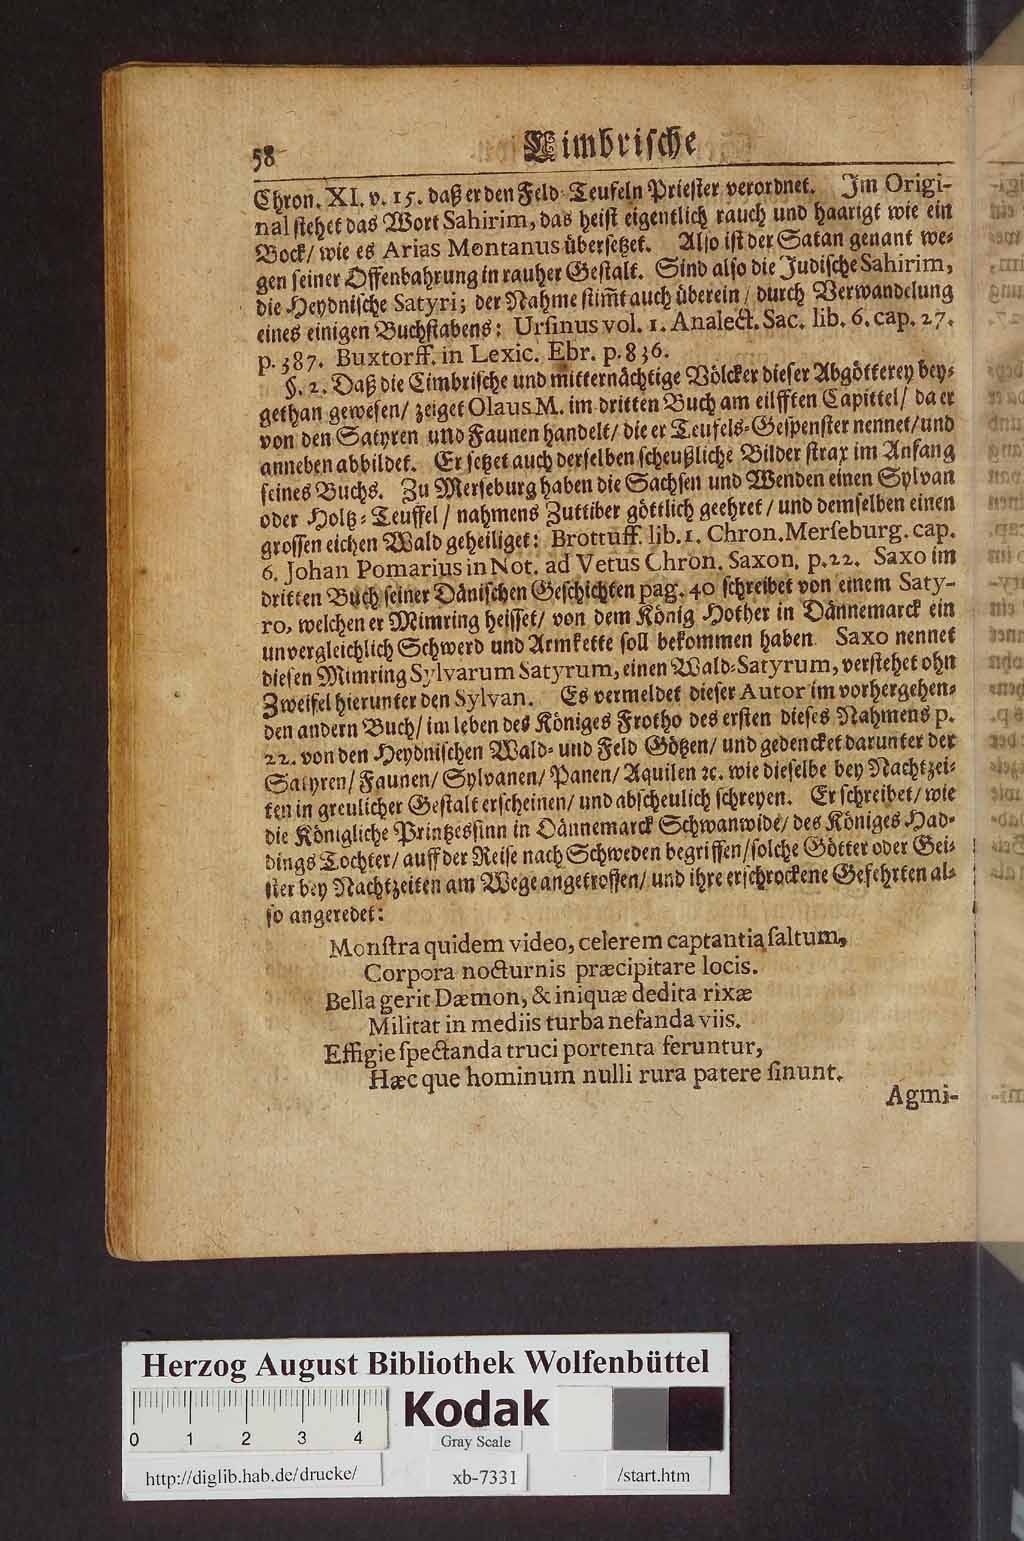 58
Cimbrische
Chron. XI. v. 15. daß er den Feld-Teufeln Priester verordnet. Im Origi-
nal stehet das Wort Sahirim, das heist eigentlich rauch und haarigt wie ein
Bock/ wie es Arias Montanus übersetzet. Also ist der Satan genant we-
gen seiner Offenbahrung in rauher Gestalt. Sind also die Judische Sahirim,
die Heydnische Satyri; der Nahme stim̃t auch überein/ durch Verwandelung
eines einigen Buchstabens: Ursinus vol. 1. Analect. Sac. lib. 6. cap. 27.
p. 387. Buxtorff. in Lexic. Ebr. p. 836.
§. 2. Daß die Cimbrische und mitternächtige Völcker dieser Abgötterey bey-
gethan gewesen/ zeiget Olaus M. im dritten Buch am eilfften Capittel/ da er
von den Satyren und Faunen handelt/ die er Teufels-Gespenster nennet/ und
anneben abbildet. Er setzet auch derselben scheußliche Bilder strax im Anfang
seines Buchs. Zu Merseburg haben die Sachsen und Wenden einen Sylvan
oder Holtz-Teuffel/ nahmens Zuttiber göttlich geehret/ und demselben einen
grossen eichen Wald geheiliget: Brottuff. lib. 1. Chron. Merseburg. cap.
6. Johan Pomarius in Not. ad Vetus Chron. Saxon. p. 22. Saxo im
dritten Buch seiner Dänischen Geschichten pag. 40 schreibet von einem Saty-
ro, welchen er Mimring heisset/ von dem König Hother in Dännemarck ein
unvergleichlich Schwerd und Armkette soll bekommen haben Saxo nennet
diesen Mimring Sylvarum Satyrum, einen Wald-Satyrum, verstehet ohn
Zweifel hierunter den Sylvan. Es vermeldet dieser Autor im vorhergehen-
den andern Buch/ im leben des Königes Frotho des ersten dieses Nahmens p.
22. von den Heydnischen Wald- und Feld Götzen/ und gedencket darunter der
Satyren/ Faunen/ Sylvanen/ Panen/ Aquilen ꝛc. wie dieselbe bey Nachtzei-
ten in greulicher Gestalt erscheinen/ und abscheulich schreyen. Er schreibet/ wie
die Königliche Printzessinn in Dännemarck Schwanwide/ des Königes Had-
dings Tochter/ auff der Reise nach Schweden begriffen/ solche Götter oder Gei-
ster bey Nachtzeiten am Wege angetroffen/ und ihre erschrockene Gefehrten al-
so angeredet:
Monstra quidem video, celerem captantia saltum,
Corpora nocturnis præcipitare locis.
Bella gerit Dæmon, & iniquæ dedita rixæ
Militat in mediis turba nefanda viis.
Effigie spectanda truci portenta feruntur,
Hæc que hominum nulli rura patere sinunt.
Agmi-
Herzog August Bibliothek Wolfenbüttel
0 1 2 3 4
Kodak
Gray Scale
http://diglib.hab.de/drucke/
xb-7331
/start.htm